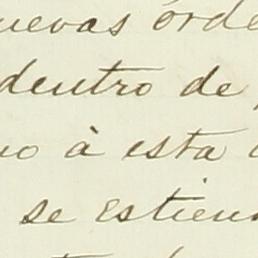 uevas órde
dentro de
no à esta
se estien